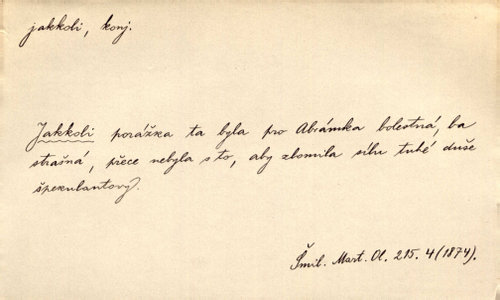 jakkoli, konj.
Jakkoli porážka ta byla pro Abrámka bolestná, ba
strašná, přece nebyla s to, aby zlomila sílu tuhé duše
špekulantovy.
Šmil. Mart. Ol. 215. 4 (1874).